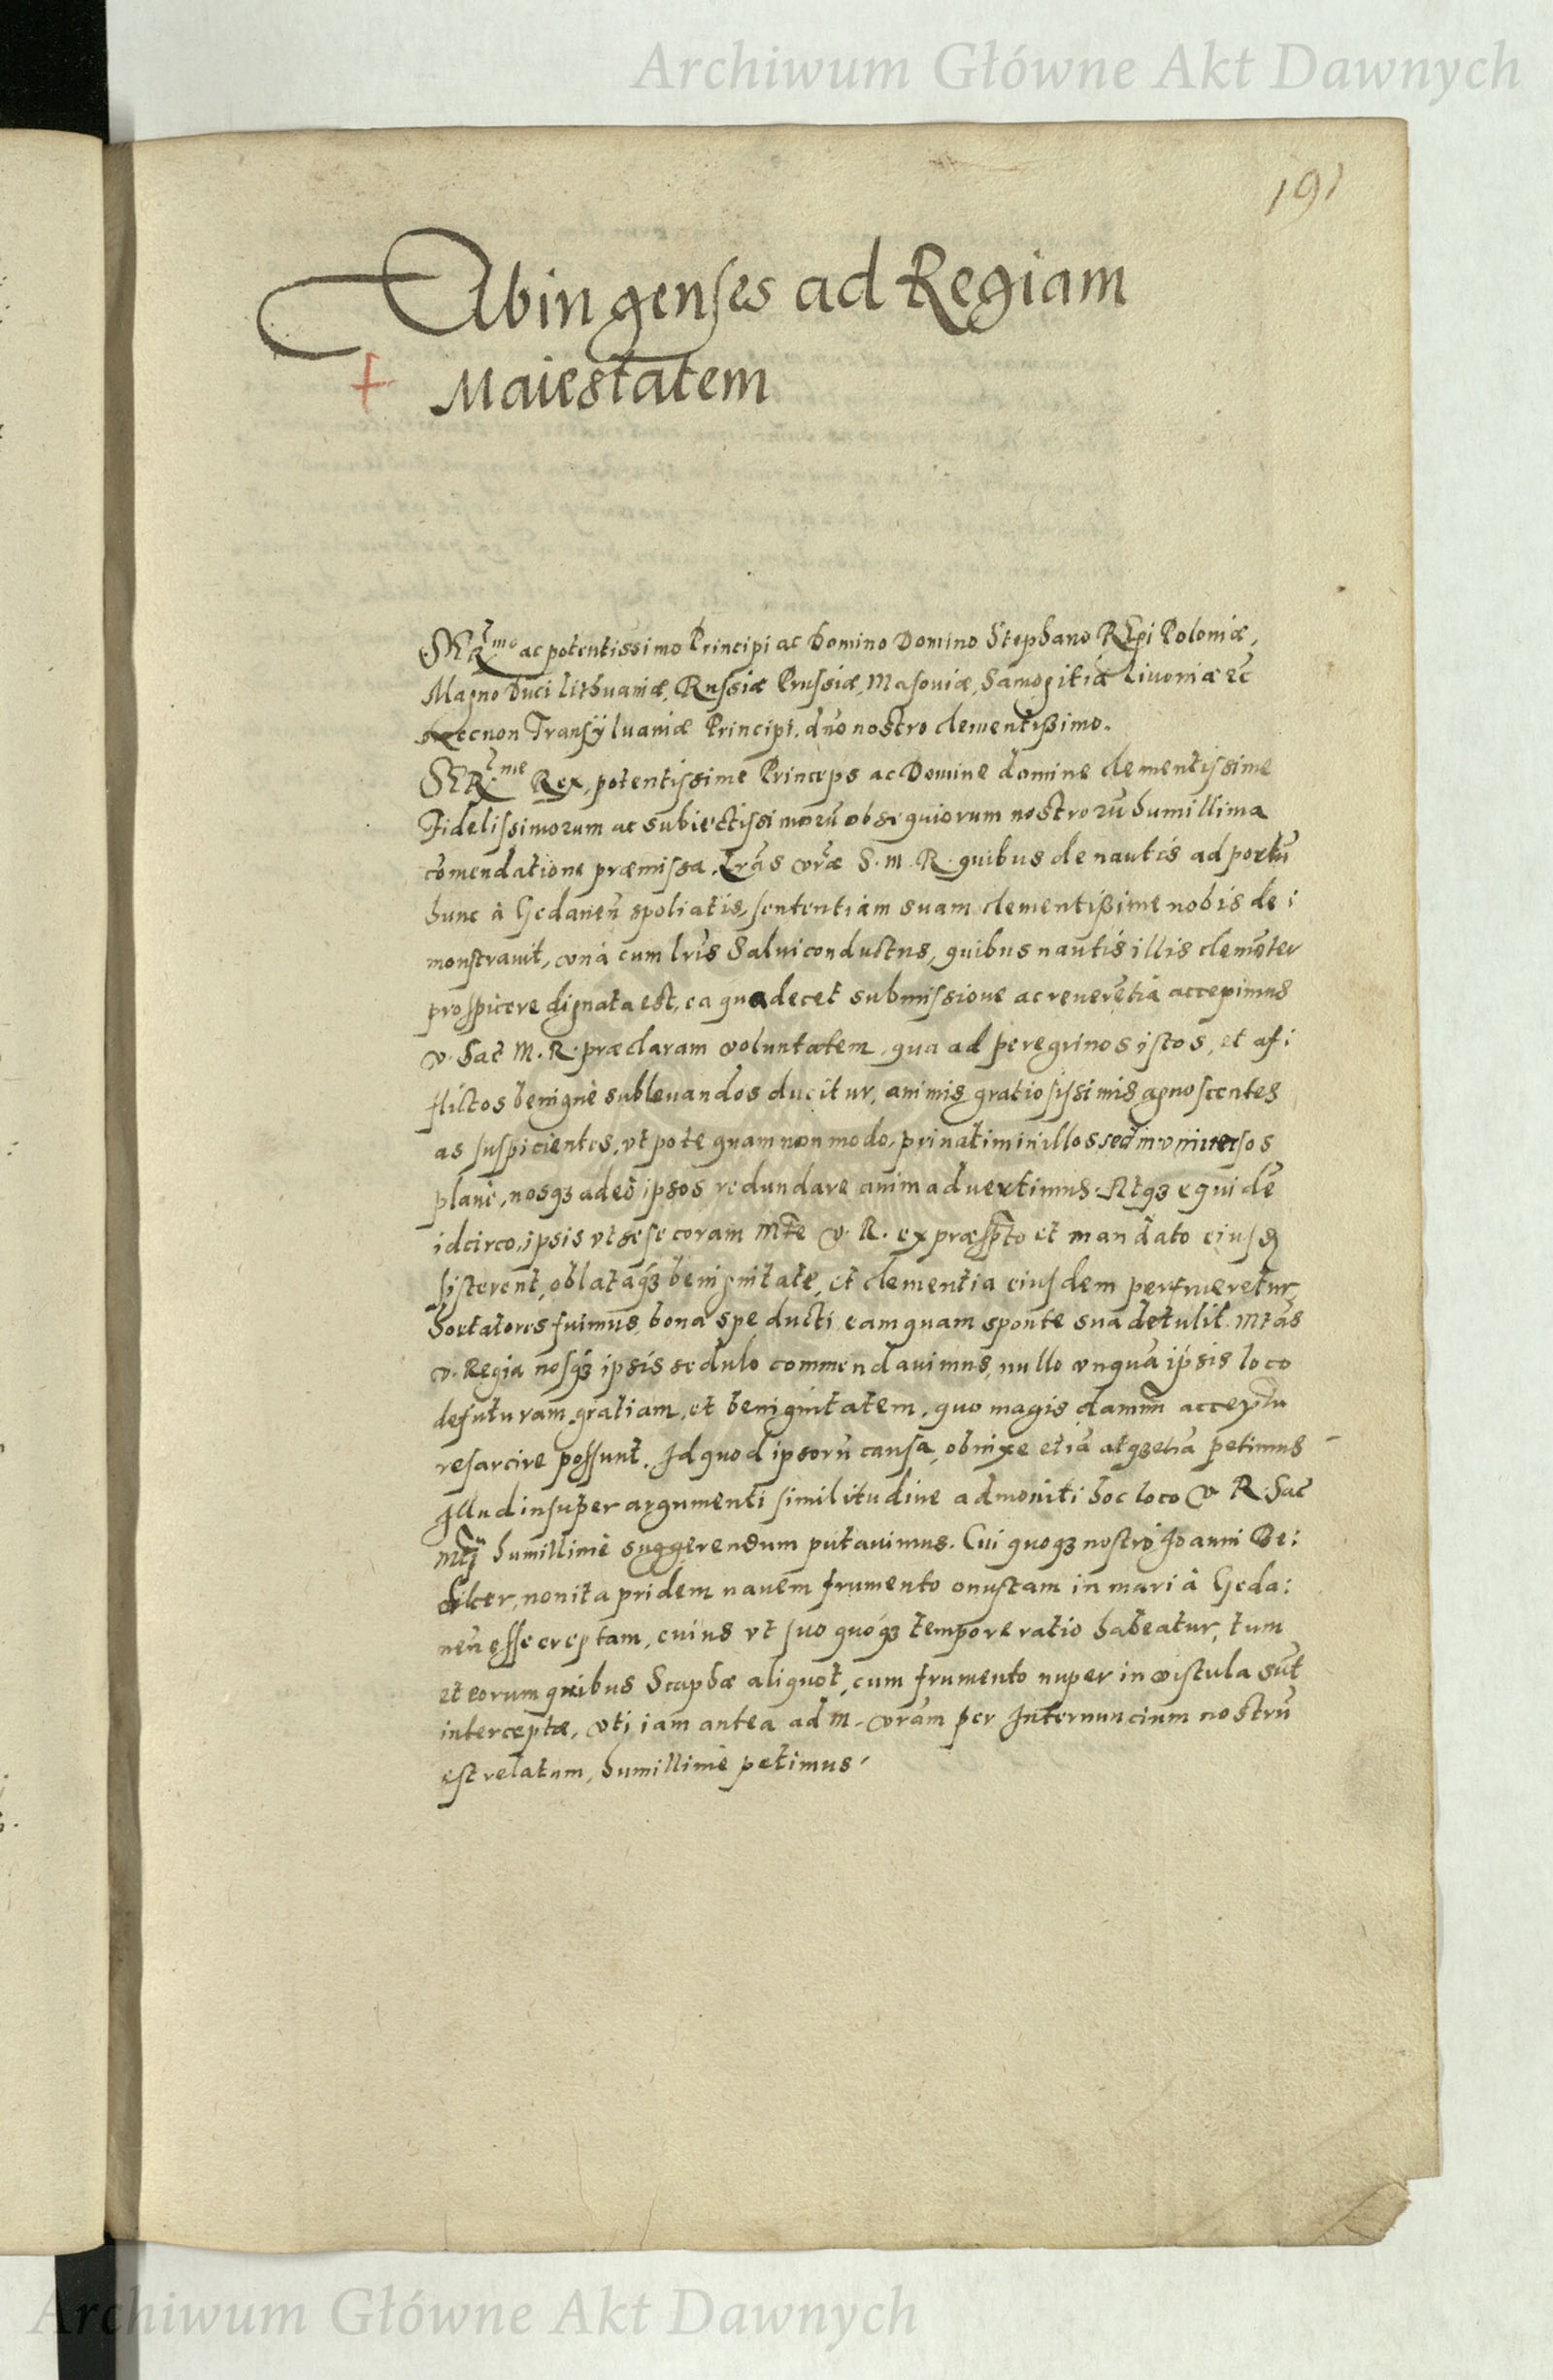 Archiwum Główne Akt Dawnych
191
Elbingenses ad Regiam
Maiestatem
SERmo ac potentissimo Principi ac Domino Domino Stephano REgi Poloniæ,
Magno Duci Lithuaniæ, Russiæ Prussiæ, Masouiæ, Samogitiæ Liuoniæ ec̄
necnon Transÿluaniæ Principi, dn̄o nostro clementißimo.
SERme Rex, potentissime Princeps ac Domine domine clementissime
Fidelissimorum ac subiectissimorū obsequiorum nostrorū humillima
cōmendatione præmissa. Lrās vr̄æ S. M. R. quibus de nautis ad portū
hunc à Gedanen̄ spoliatis, sententiam suam clementißime nobis de:
monstrauit, vnà cum lr̄is Salui conductus, quibus nautis illis clemēter
prospicere dignata est, ea qua decet submissione ac reuerētia accepimus
v. Sac M. R. præclaram voluntatem, qua ad peregrinos istos, et af:
flictos benignè subleuandos ducitur, animis gratiosissimis agnoscentes
as suspicientes, vt pote quam non modo, priuatim in illos sed in vniuersos
planè, nosqz adeò ipsos redundare animaduertimus. Atqz equidē
idcirco, ipsis vt sese coram Mte v. R. ex præsc̄pto et mandato eiusd
sisterent, oblatāqz benignitate, et clementia eiusdem perfrueretur,
hortatores fuimus, bona spe ducti eam quam sponte sua detulit Mtas
v. Regia nosqz ipsis sedulo commendauimus, nullo vnquā ipsis loco
defuturam gratiam, et benignitatem, quo magis damnū acceptū
resarcire possunt. Id quod ipsorū causa, obnixe etiā atqz etiā petimus
Illud insuper argumenti similitudine admoniti hoc loco v R. Sac
Mtj humillimè suggerendum putauimus. Cui quoqz nostro Joanni Be:
, non ita pridem nauem frumento onustam in mari à Geda:
nen̄ esse ereptam, cuius vt suo quoqz tempore ratio habeatur, tum
et eorum quibus Scaphæ aliquot, cum frumento nuper in vistula sūt
interceptæ, vti iam antea ad M. vrām per Internuncium nostrū
est relatum, humillimè petimus
Archiwum Główne Akt Dawnych